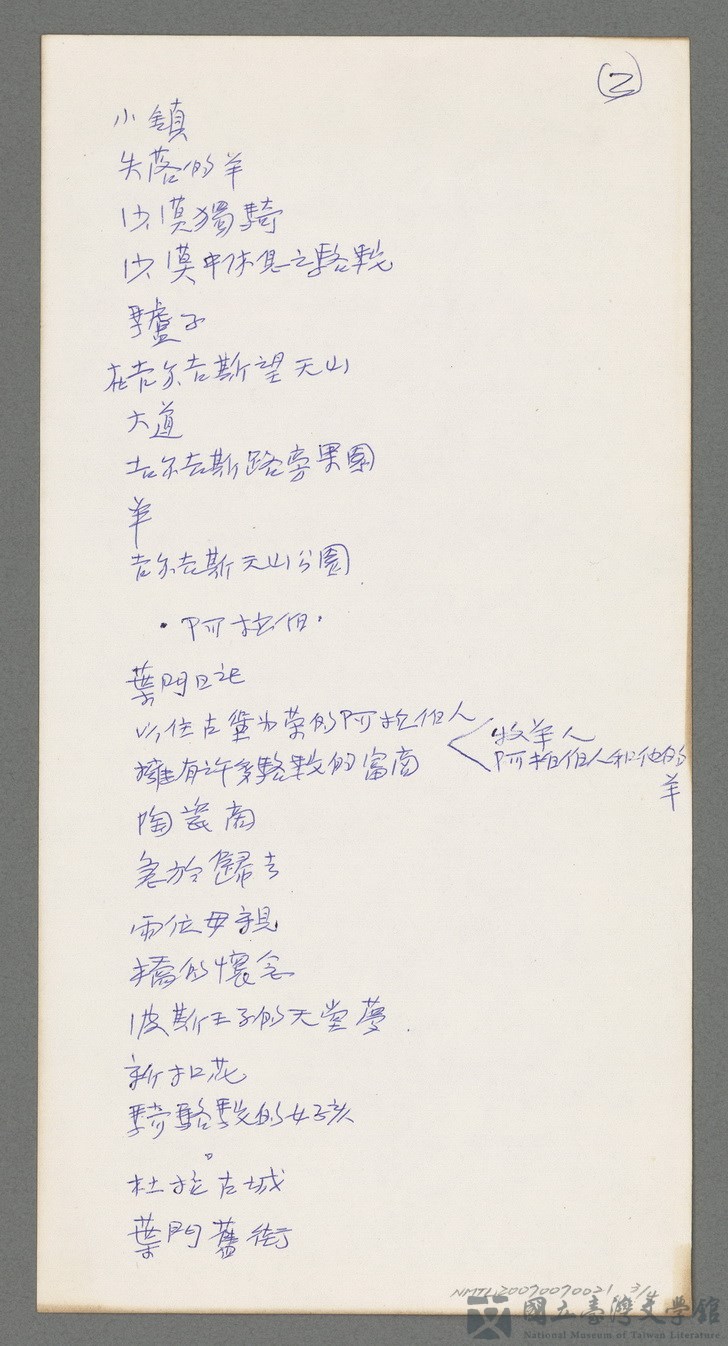 ②
小鎮
失落的羊
沙漠獨騎
沙漠中休息之駱駝
驢子
在吉尔吉斯望天山
大道
吉尔吉斯路旁果園
羊
吉尔吉斯天山公園
·阿拉伯·
葉門日記
以住古堡为荣的阿拉伯人
擁有许多駱駝的富商
牧羊人
阿拉伯人和他的
羊
陶瓷商
急於歸去
兩位母親
橋的懷念
波斯王子的天堂夢.
新扣花
騎駱駝的女孩
杜拉古城
葉門舊街
NMTL20090090021 3/4
國立臺灣文學館
National Museum of Taiwan Literature